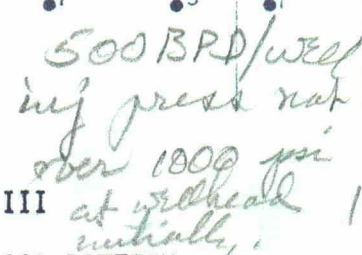 500 BPD/well
inj press not
over 1000 psi
III at wellhead
initially.